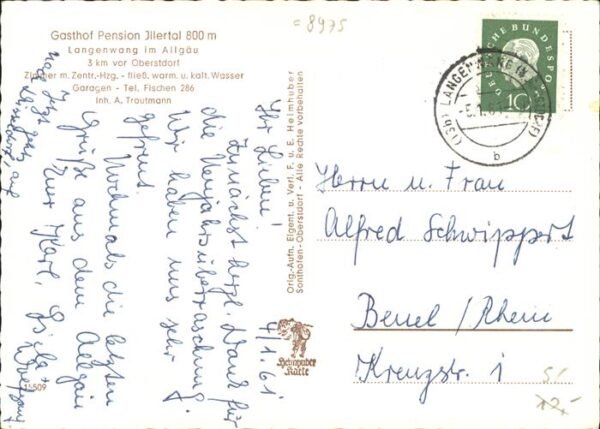 = 8975
Gasthof Pension Jllertal 800 m
Langenwang im Allgäu
3 km vor Oberstdorf
Zimmer m. Zentr.-Hzg. - fließ. warm. u. kalt. Wasser
Garagen - Tel. Fischen 286
Inh. A. Trautmann
4/1.61
Ihr Lieben!
Zunächst herzl. Dank für
die Neujahrsüberraschung.
Wir haben uns sehr
gefreut.
Nochmals die letzten
Grüße aus dem Allgäu
Eure Karl, Wolfgang
Jetzt geht's
Orig.-Aufn. Eigent. u. Verl. F. u. E. Heimhuber
Sonthofen-Oberstdorf - Alle Rechte vorbehalten
Heimhuber
Karte
DEUTSCHE BUNDESPOST
10
(13b) LANGENWANG
b
Herrn u. Frau
Alfred Schwippert
Beuel / Rhein
Kreuzstr. 1
5/
12,-